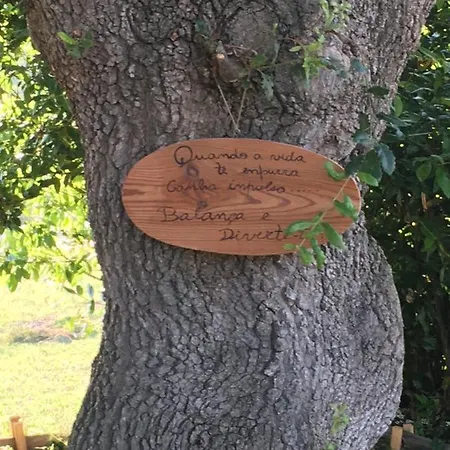 Quando a vida
te empurra
Ganha impulso...
Balança e
Diverte